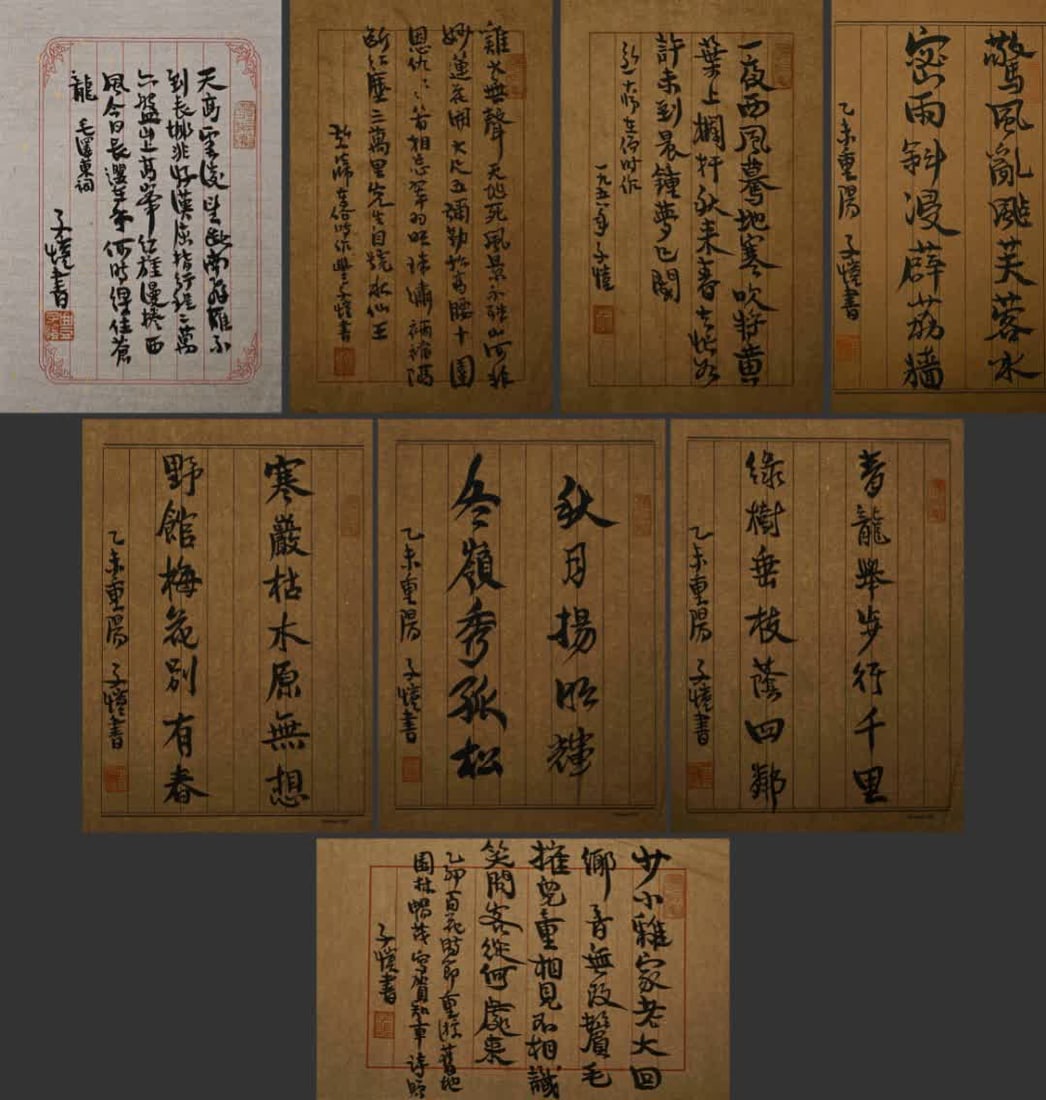 天高雲淡望斷南飛雁不
到長城非好漢屈指行程二萬
六盤山上高峰紅旗漫捲西
風今日長纓在手何時縛住蒼
龍 毛澤東詞
子愷書
雞犬無聲天地死風景不殊山河非
妙蓮花開大尺五彌勒松高腰十圍
恩仇〻〻若相忘翠羽明珠繡裲襠隔
斷紅塵三萬里先生自號水仙王
師在俗時作 子愷書
一夜西風驀地寒吹將黃
葉上欄杆秋來春去忙如
許未到晨鐘夢已闌
弘一大師在俗時作
一九五六年 子愷
驚風亂颭芙蓉水
密雨斜浸薜荔牆
乙未重陽 子愷書
寒巖枯木原無想
野館梅花別有春
乙未重陽 子愷書
秋月揚明輝
冬嶺秀孤松
乙未重陽 子愷書
青龍舉步行千里
綠樹垂枝蔭四鄰
乙未重陽 子愷書
少小離家老大回
鄉音無改鬢毛
摧兒童相見不相識
笑問客從何處來
乙卯百花時節重游舊地
園林暢茂寫賀知章詩贈
子愷書